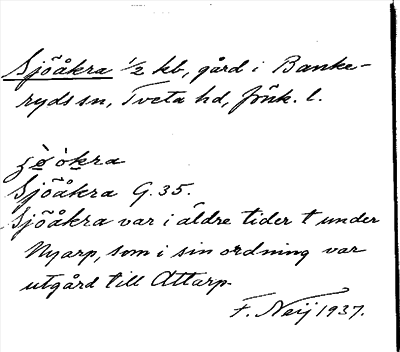 Sjöåkra 1/2 kb, gård i Banke-
ryds sn, Tveta hd, Jönk. l.
Sjöåkra G. 35.
Sjöåkra var i äldre tider t under
Nyarp, som i sin ordning var
utgård till Attarp.
F. Neij 1937.